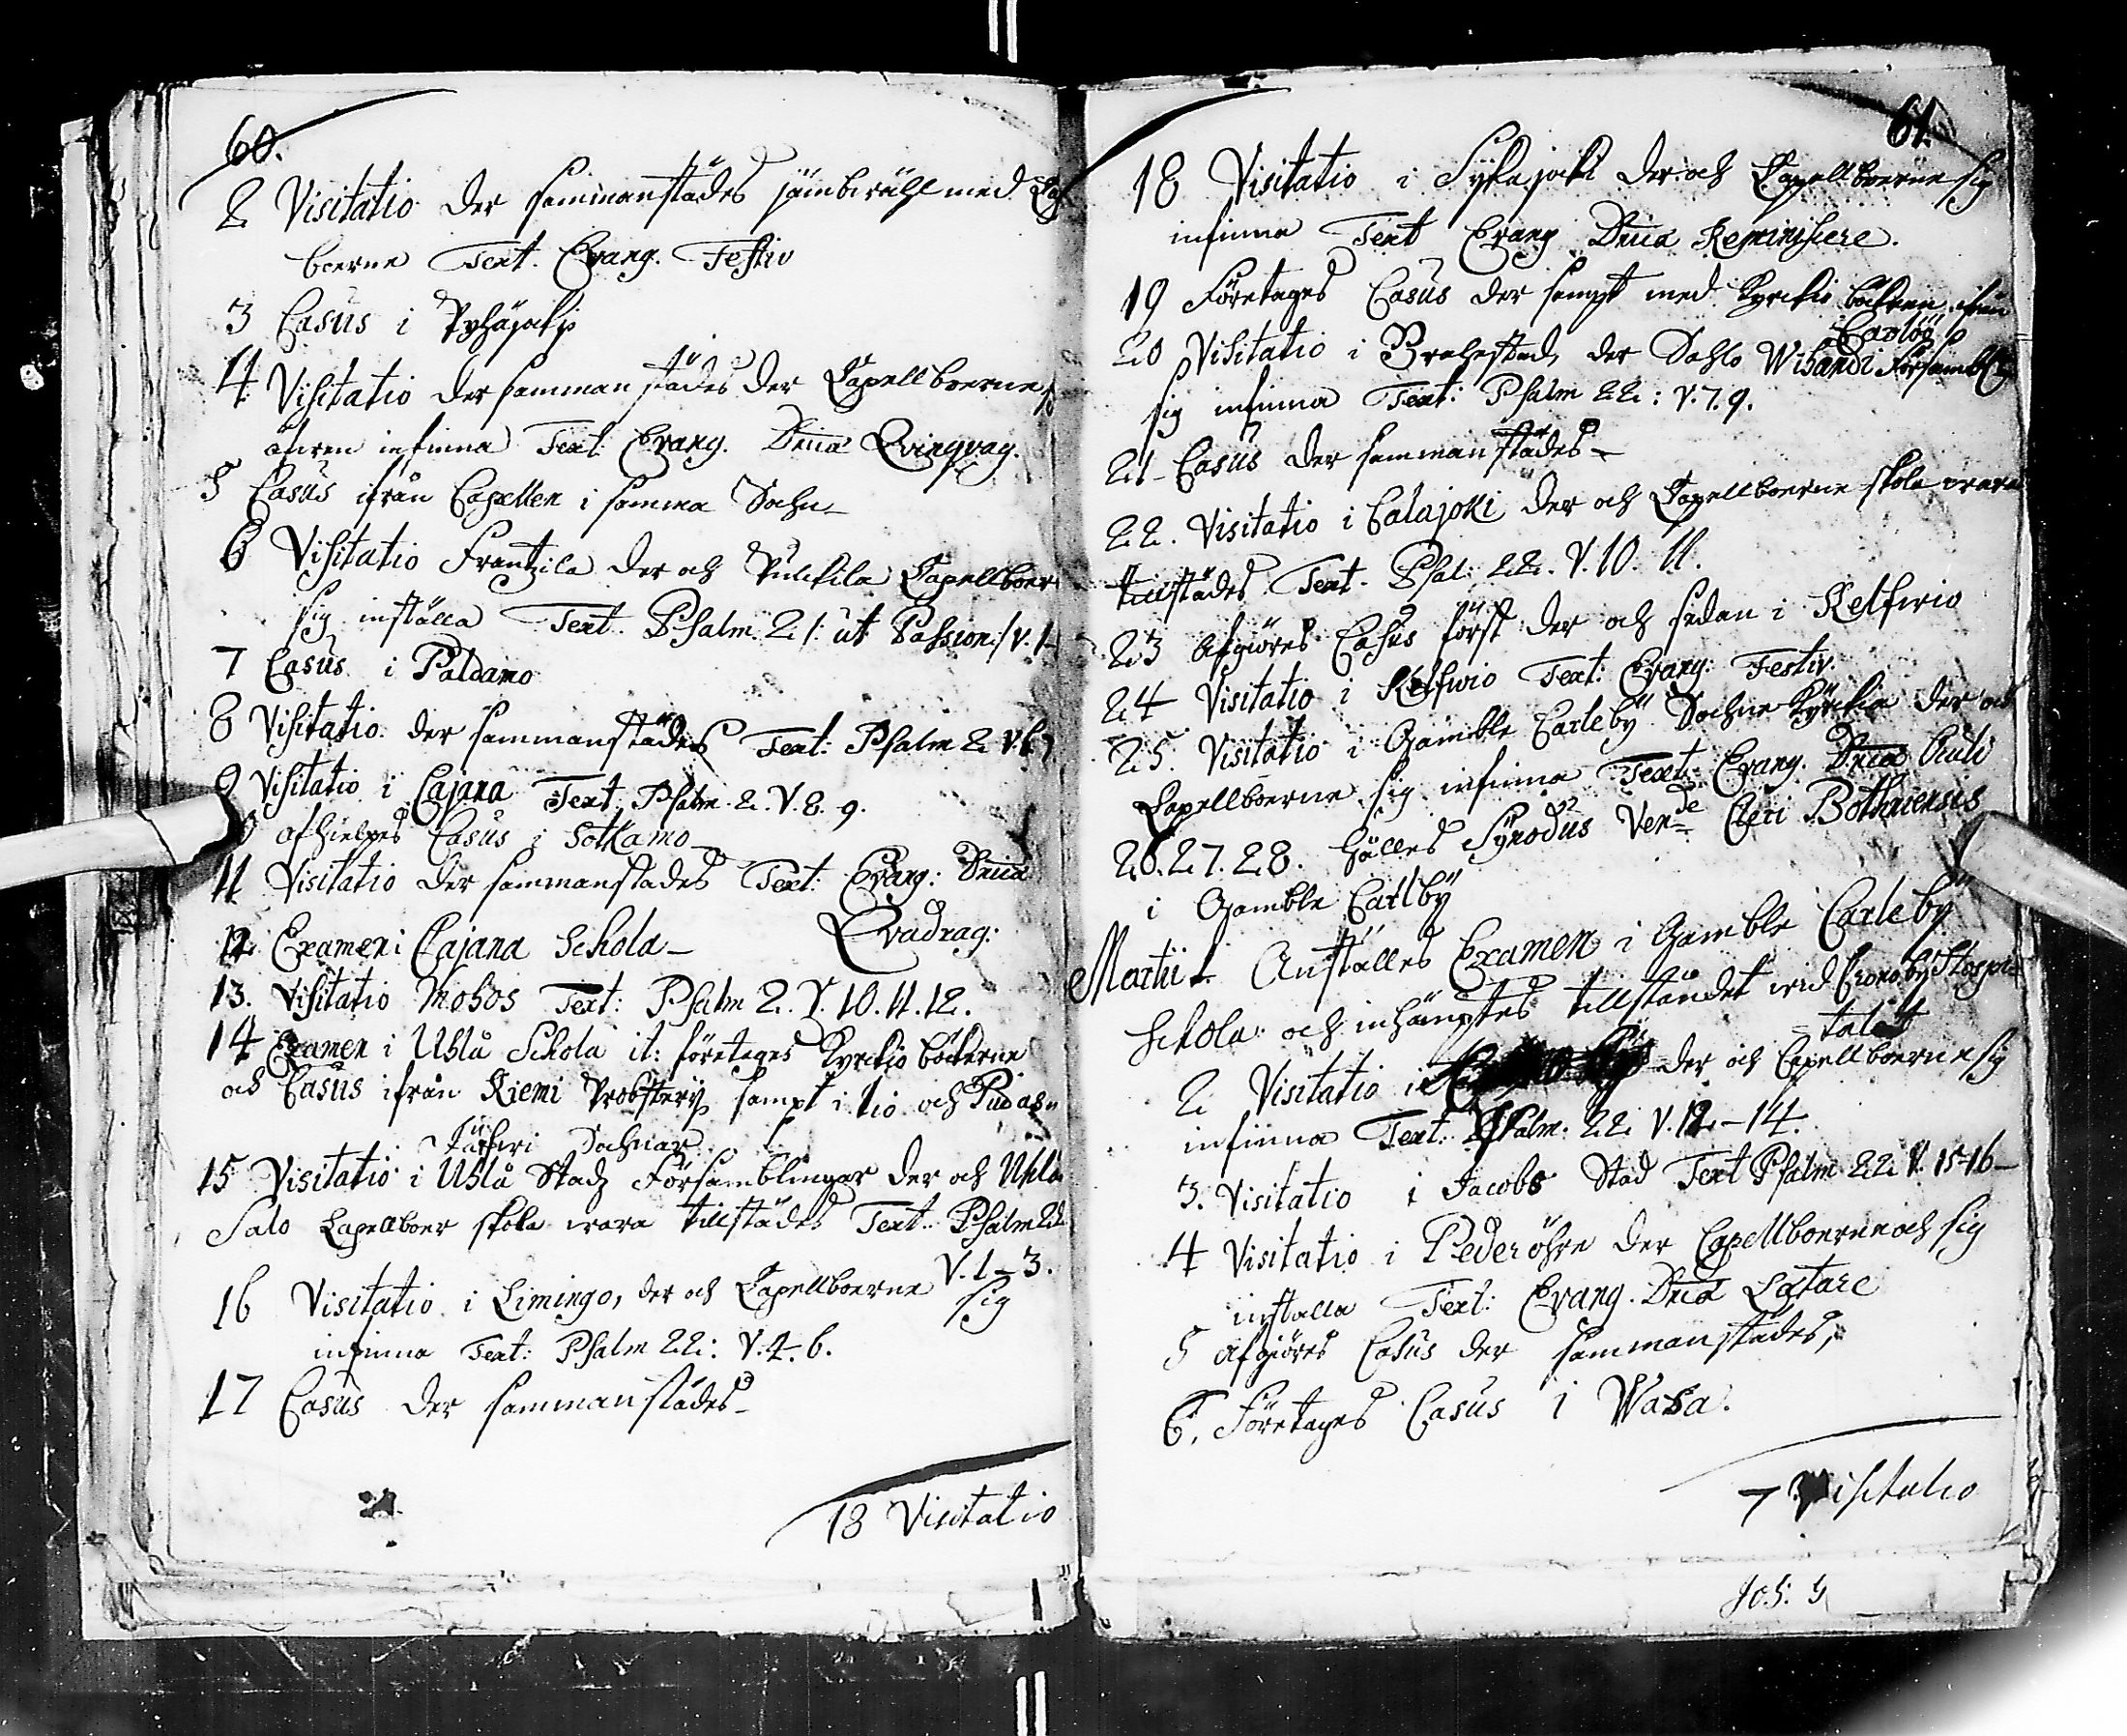 60.
2 Visitatio der sammanstädes jämbwähl med Cap
boerne Text. Evang. Festiv
3 Casus i Pyhäjoki
4 Visitatio der sammanstädes der Capellboerne
infinna Text: Evang. Dnica Qvinqvag.
5 Casus ifrån Capellen i samma Sochn
6 Visitatio Frantzila der och Pulckila Capellboer
sig inställa Text. Psalm. 2. /: ut Passion:/ v. 1
7 Casus i Paldamo
8 Visitatio der sammanstädes Text: Psalm 2 V. 6 7
9 Visitatio i Cajana Text. Psalm. 2. V. 8. 9.
afhielpes Casus i Sotkamo
11 Visitatio der sammanstädes Text: Evang: Dnica
Qvadrag:
12 Examen i Cajana Schola
13. Visitatio Mohos Text: Psalm 2. V. 10. 11. 12.
14 Examen i Uhlå Schola it: företages Kyrckio böckerne
och Casus ifrån Kiemi Probstery sampt i Iio och Pudas
järfwi Sochnar
15 Visitatio i Uhlå Stadz Församblingar der och Uhlå
Salo Capellboer skola wara tillstädes Text. Psalm 22
V. 1-3.
16 Visitatio i Limingo, der och Capellboerne sig
infinna Text: Psalm 22: V. 4. 6.
17 Casus der sammanstädes
18 Visitatio
61.
18 Visitatio i Syhajocki der och Capellboerne sig
infinna Text Evang Dnica Reminiscere.
19 Företages Casus der sampt med Kyrckio böckren ifrån
Carlöö
20 Visitatio i Brahestad, der Sahlo Wihandi Försambl
sig infinna Text: Psalm 22: V. 7. 9.
21 Casus der sammanstädes
22. Visitatio i Calajoki der och Capellboerne skola wara
tillstädes Text. Psal: 22. V. 10. 11.
23 Afgiöres Casus först der och sedan i Kelfwio
24 Visitatio i Kelfwio Text: Evang: Festiv.
25. Visitatio i Gamble Carleby Sochne Kyrckia der och
Capellboerne sig infinna Text: Evang. Dnica Oculi
26. 27. 28. hålles Synodus Vende Cleri Bothniensis
i Gamble Carlby
Martii 1. Anställes Examen i Gamble Carleby
Schola och inhämptes tillståndet wid Cronoby Hospi
talet
2 Visitatio i der och Capellboerne sig
infinna Text: Psalm. 22 V. 12-14.
3. Visitatio i Jacobs Stad Text Psalm 22 V. 15-16
4 Visitatio i Pederöhre der Capellboerne och sig
inställa Text: Evang. Dnica Lætare
5 Afgiöres Casus der sammanstädes,
6. Företages Casus i Wasa.
7 Visitatio